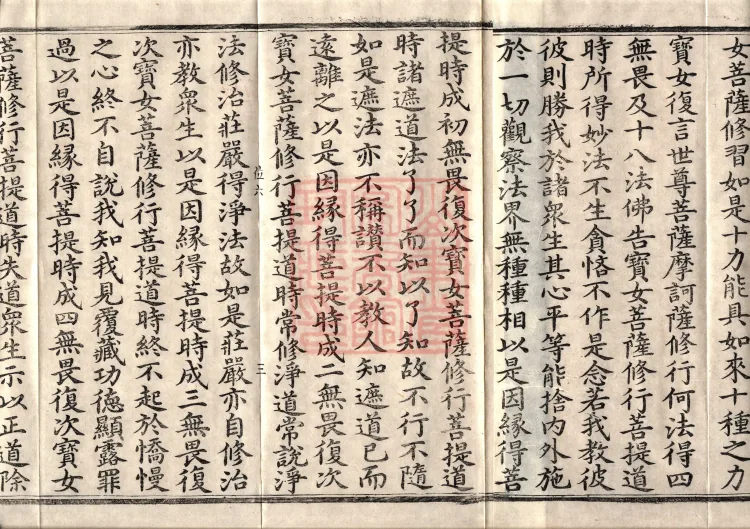 女菩薩修習如是十力能具如來十種之力
寶女復言世尊菩薩摩訶薩修行何法得四
無畏及十八法佛告寶女菩薩修行菩提道
時所得妙法不生貪悋不作是念若我教彼
彼則勝我於諸衆生其心平等能捨內外施
於一切觀察法界無種種相以是因緣得菩
提時成初無畏復次寶女菩薩修行菩提道
時諸遮道法了了而知以了知故不行不隨
如是遮法亦不稱讚不以教人知遮道已而
遠離之以是因緣得菩提時成二無畏復次
寶女菩薩修行菩提道時常修淨道常說淨
六 三
法修治莊嚴得淨法故如是莊嚴亦自修治
亦教衆生以是因緣得菩提時成三無畏復
次寶女菩薩修行菩提道時終不起於憍慢
之心終不自說我知我見覆藏功德顯露罪
過以是因緣得菩提時成四無畏復次寶女
菩薩修行菩提道時失道衆生示以正道除